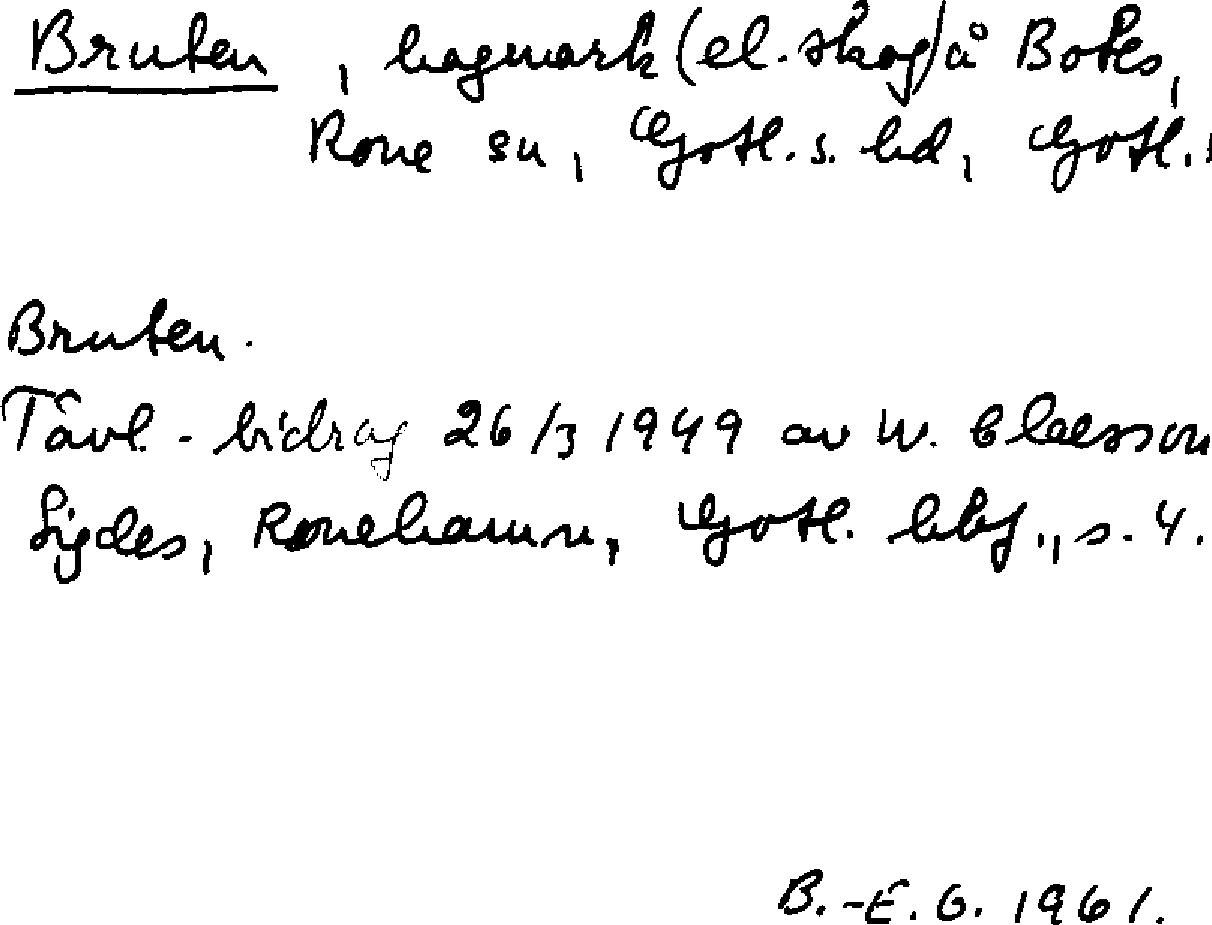 Bruten, hagmark (el. skog) å Botes,
Rone sn, Gotl. s. hd, Gotl.
Bruten.
Tävl. - bidrag 26/3 1949 av W. Claesson
Sigdes, Ronehamn, Gotl. hbf., s. 4.
B.-E. G. 1961.